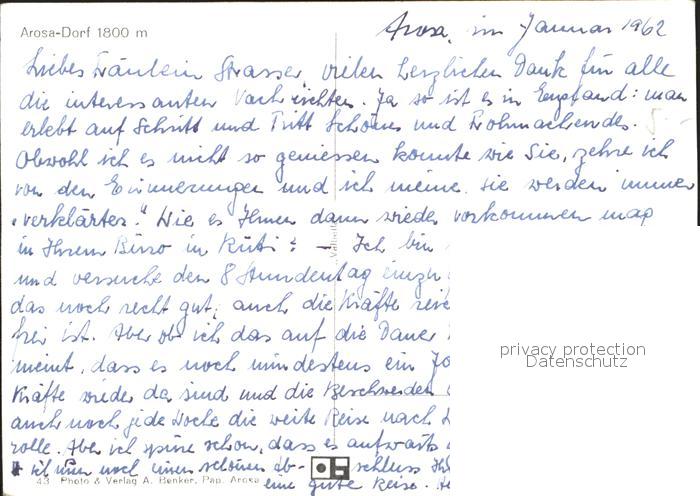 Arosa-Dorf 1800 m
Arosa, im Januar 1962
Liebes Fräulein Strasser, vielen herzlichen Dank für alle
die interessanten Nachrichten. Ja so ist es in Lappland: man
erlebt auf Schritt und Tritt Schönes und Frohmachendes.
Obwohl ich es nicht so geniessen konnte wie Sie, zehre ich
von den Erinnerungen und ich meine sie werden immer
"verklärter." Wie es Ihnen dann wieder vorkommen mag
in Ihrem Büro in Rüti? — Ich bin
und versuche den 8 Stundentag
das noch recht gut, auch die Kräfte
frei ist. Aber ob ich das auf die Dauer
meint, dass es noch mindestens ein
Kräfte wieder da sind und die Beschwerden
auch noch jede Woche die weite Reise nach
rolle. Aber ich spüre schon, dass es aufwärts
nun noch einen schönen Ab- schluss
43 Photo & Verlag A. Benker, Pap. Arosa
eine gute Reise.
privacy protection
Datenschutz